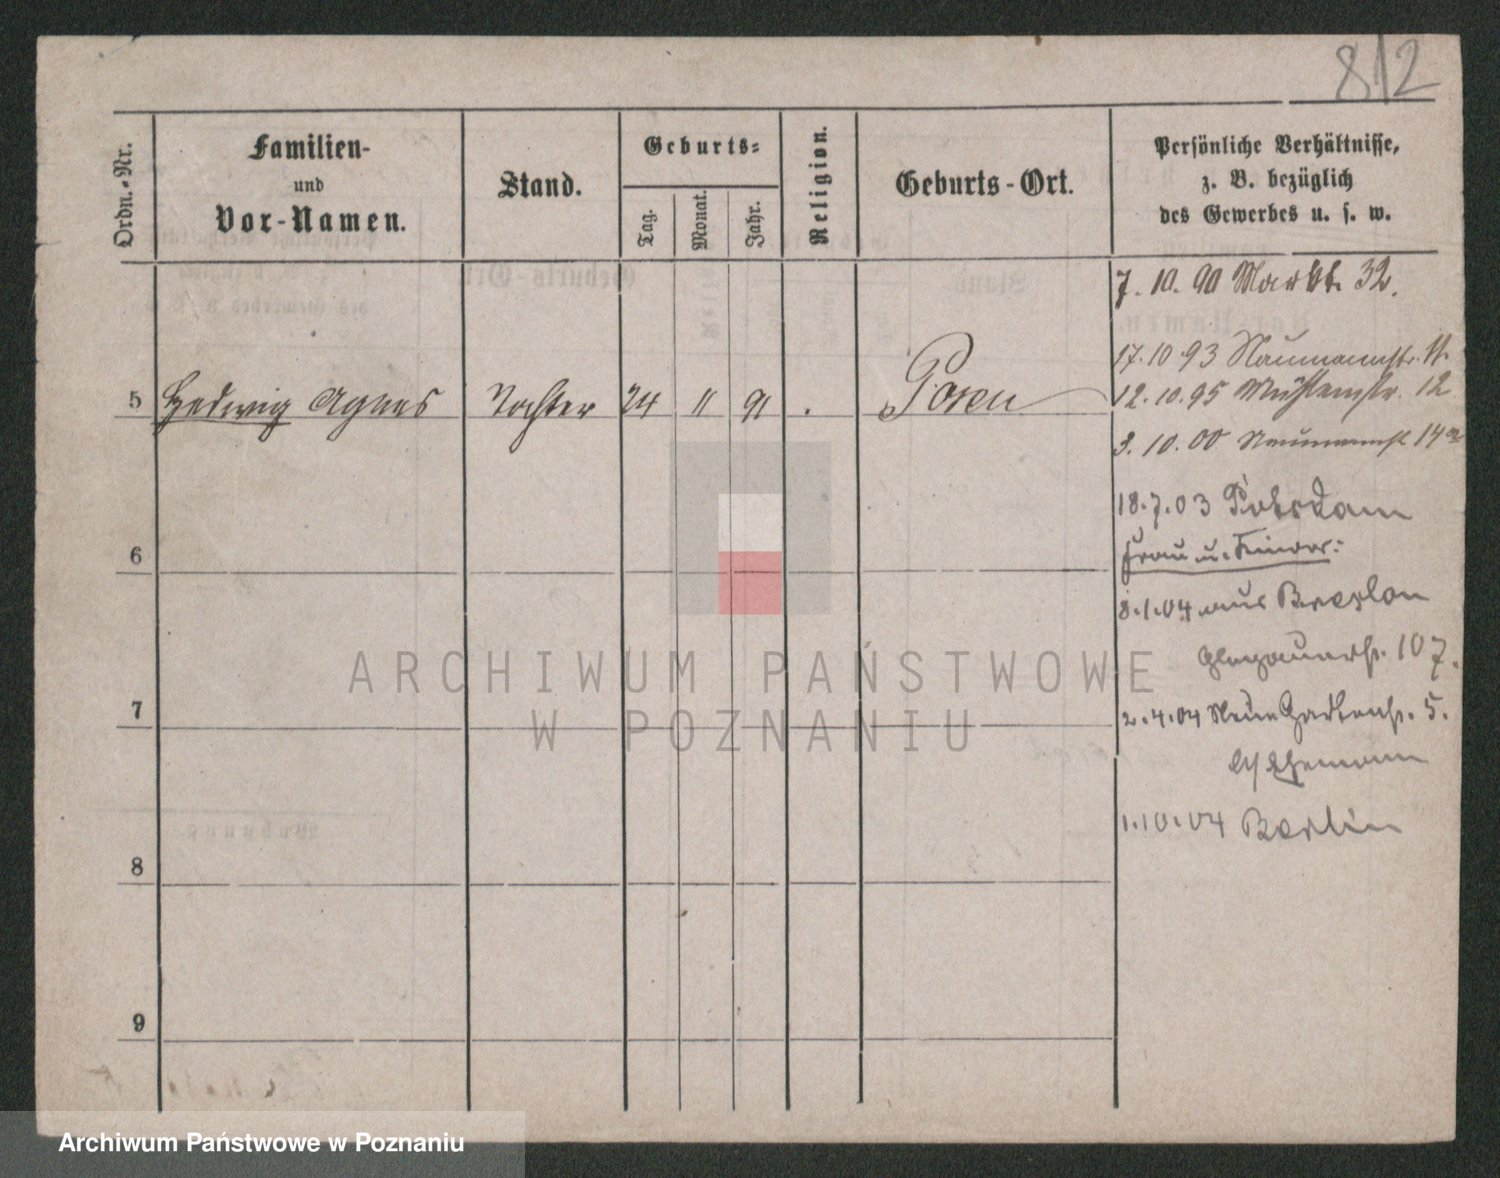 812
Ordn.-Nr.
Familien-
und
Vor-Namen.
Stand.
Geburts-
Tag.
Monat.
Jahr.
Religion.
Geburts-Ort.
Persönliche Verhältnisse,
z. B. bezüglich
des Gewerbes u. s. w.
7. 10. 90 Markt. 32.
17. 10 93 Naumannstr. 11.
5 Hedwig Agnes Tochter 24 11 91 . Posen 12. 10. 95 Mühlenstr. 12
3. 10. 00 Naumannst 14a
18. 7. 03 Potsdam
6 Frau u. Kinder:
8. 1. 04 aus Breslau
Glogauerstr. 107.
7 2. 4. 04 Neue Gartenstr. 5.
Ehemann
1. 10. 04 Berlin
8
9
ARCHIWUM PAŃSTWOWE
W POZNANIU
Archiwum Państwowe w Poznaniu